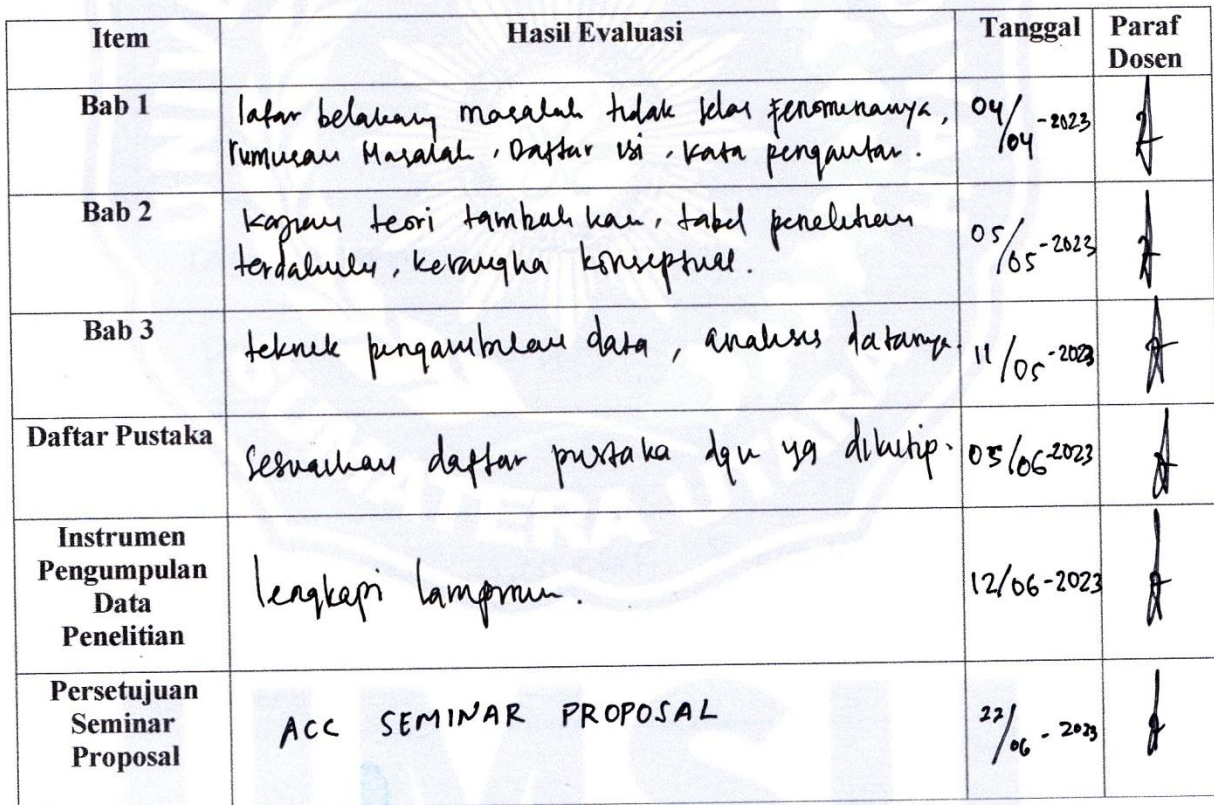 Item Hasil Evaluasi Tanggal Paraf
Dosen
Bab 1
latar belakang masalah tidak jelas fenomenanya,
rumusan Masalah, Daftar isi, kata pengantar.
04/04-2023
Bab 2
kajian teori tambah kan, tabel penelitian
terdahulu, kerangka konseptual.
05/05-2023
Bab 3
teknik pengambilan data, analisis datanya.
11/05-2023
Daftar Pustaka
Sesuaikan daftar pustaka dgn yg dikutip.
05/06-2023
Instrumen
Pengumpulan
Data
Penelitian
lengkapi lampiran.
12/06-2023
Persetujuan
Seminar
Proposal
ACC SEMINAR PROPOSAL
22/06-2023
SUMATERA UTARA
UMSU